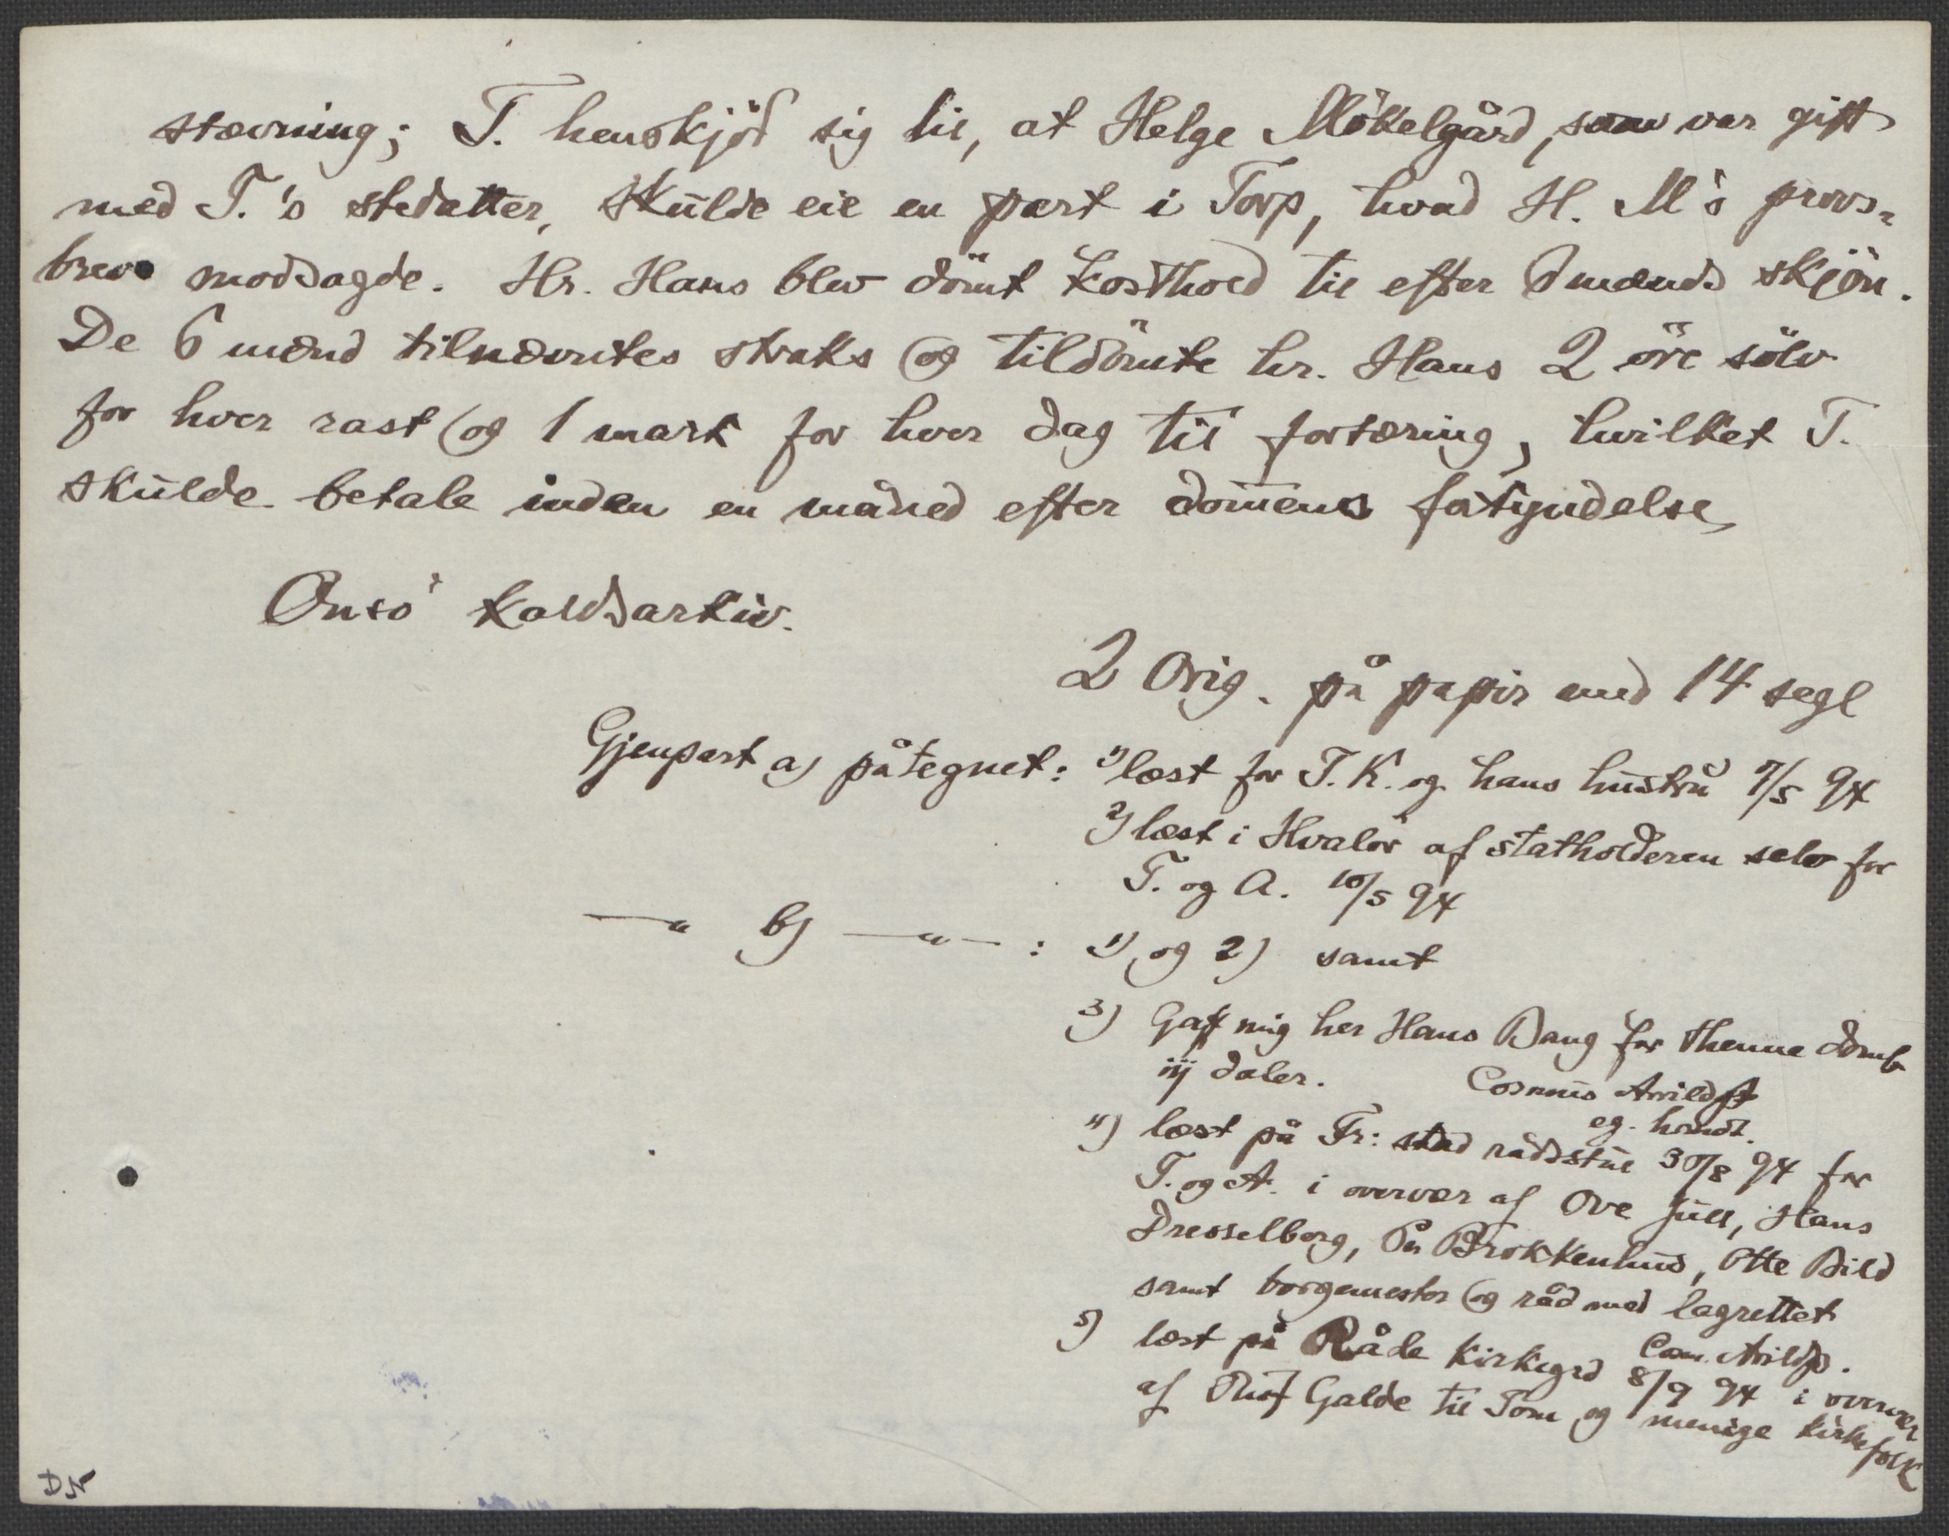 stævning; T. henskjöd sig til, at Helge Mökelgård, som var gift
med T.'s stedatter, skulde eie en part i Torp, hvad H. M's provs-
breve modsagde. Hr. Hans blev dömt kosthold til efter 6 mænds skjön.
De 6 mænd tilnævntes straks og tildömte hr. Hans 2 öre sölv
for hver rast og 1 mark for hver dag til fortæring, hvilket T.
skulde betale inden en måned efter dom̅ens forkyndelse
Onsö kaldsarkiv.
2 Orig. på papir med 14 segl
Gjenpart a) påtegnet: 1) læst for T. K. og hans hustru 7/5 94
2) læst i Hvalör af statholderen selv for
T. og A. 10/5 94
—"— b) —"— : 1) og 2) samt
3) Gaff mig her Hans Bang for thenne domb
iij daler. Cosmus Arvildß
eg. handt.
4) læst på Fr: stad rådstue 30/8 94 for
T. og A. i overvær af Ove Juel, Hans
Dresselberg, Brokkenhus, Otte Bild
samt borgemester og råd med lagrettet
Cosm. Arvildß.
5) læst på Råde kirkegrd 8/9 94 i overvær
af Oluf Galde til Tom og menige kirkefolk
DN